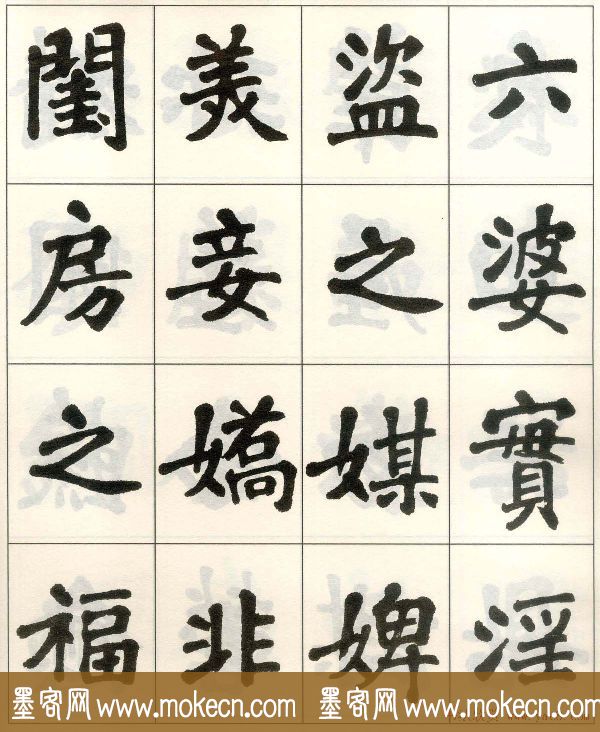 六婆實淫
盜之媒婢
美妾嬌非
閨房之福
墨客网 www.mokecn.com 墨客网 www.mokecn.com